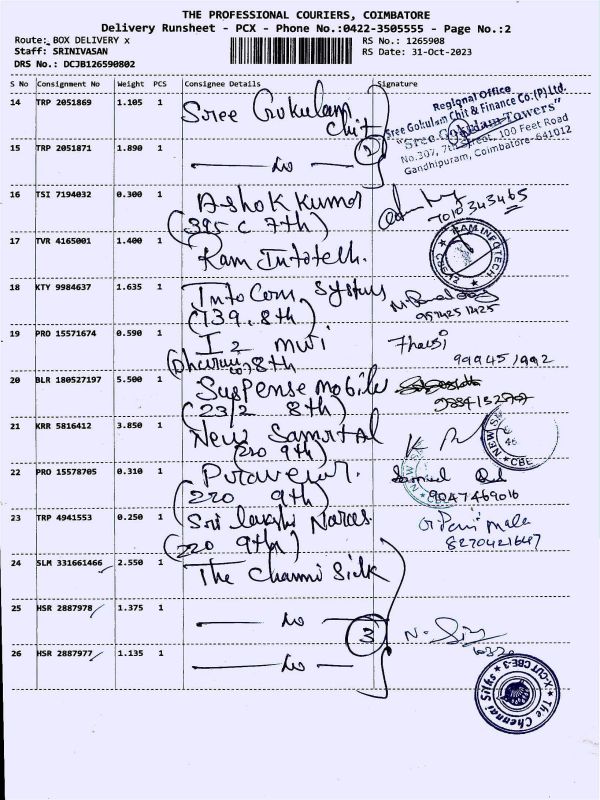 THE PROFESSIONAL COURIERS, COIMBATORE
Delivery Runsheet - PCX - Phone No.:0422-3505555 - Page No.:2
Route: BOX DELIVERY x
RS No.: 1265908
Staff: SRINIVASAN
RS Date: 31-Oct-2023
DRS No.: DCJB126590802
S No Consignment No Weight PCS Consignee Details Signature
14 TRP 2051869 1.105 1 Sree Gokulam
Chit
Regional Office
Sree Gokulam Chit & Finance Co.(P).Ltd.
"Sree Gokulam Towers"
No.307, 7th Street, 100 Feet Road
Gandhipuram, Coimbatore-641012
2
15 TRP 2051871 1.890 1 — do —
16 TSI 7194032 0.300 1 Ashok Kumar
(395 c 7th)
7010343465
17 TVR 4165001 1.400 1 Ram Infotech.
RAM INFOTECH
18 KTY 9984637 1.635 1 Info Com Systems
(739. 8th)
19 PRO 15571674 0.590 1 I 2 muti
8th
999451992
20 BLR 180527197 5.500 1 Suspense mobile
(23/2 8th)
21 KRR 5816412 3.850 1 New Samrtal
(220 9th)
NEW
CBE
22 PRO 15578705 0.310 1
(220 9th)
9047469016
23 TRP 4941553 0.250 1 Sri Lakshi Naras
(220 9th)
8270421647
24 SLM 331661466 2.550 1 The Channi Silk
25 HSR 2887978 1.375 1 — do —
3
26 HSR 2887977 1.135 1 — do —
The Chennai Silks
X-CUT CBE-3